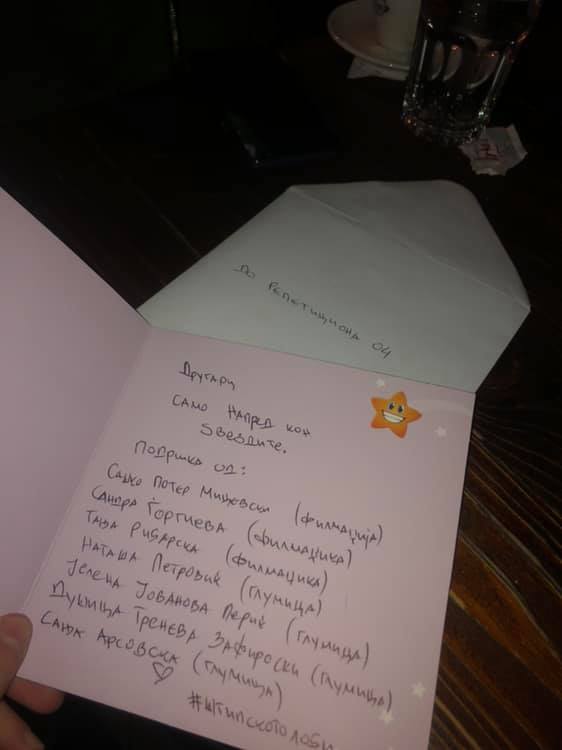 ДО РЕПЕТИЦИОНА 04
Другари
САМО НАПРЕД КОН
ЅВЕЗДИТЕ.
ПОДРШКА ОД:
САШКО ПОТЕР МИЦЕВСКИ (ФИЛМАЏИЈА)
САНДРА ЃОРГИЕВА (ФИЛМАЏИКА)
ТАЊА РИБАРСКА (ФИЛМАЏИКА)
НАТАША ПЕТРОВИЌ (ГЛУМИЦА)
ЈЕЛЕНА ЈОВАНОВА ПЕРИЌ (ГЛУМИЦА)
ДУЊИЦА ТРЕНЕВА ЗАФИРОСКИ (ГЛУМИЦА)
САЊА АРСОВСКА (ГЛУМИЦА)
#ШТИПСКОТОЛОБИ